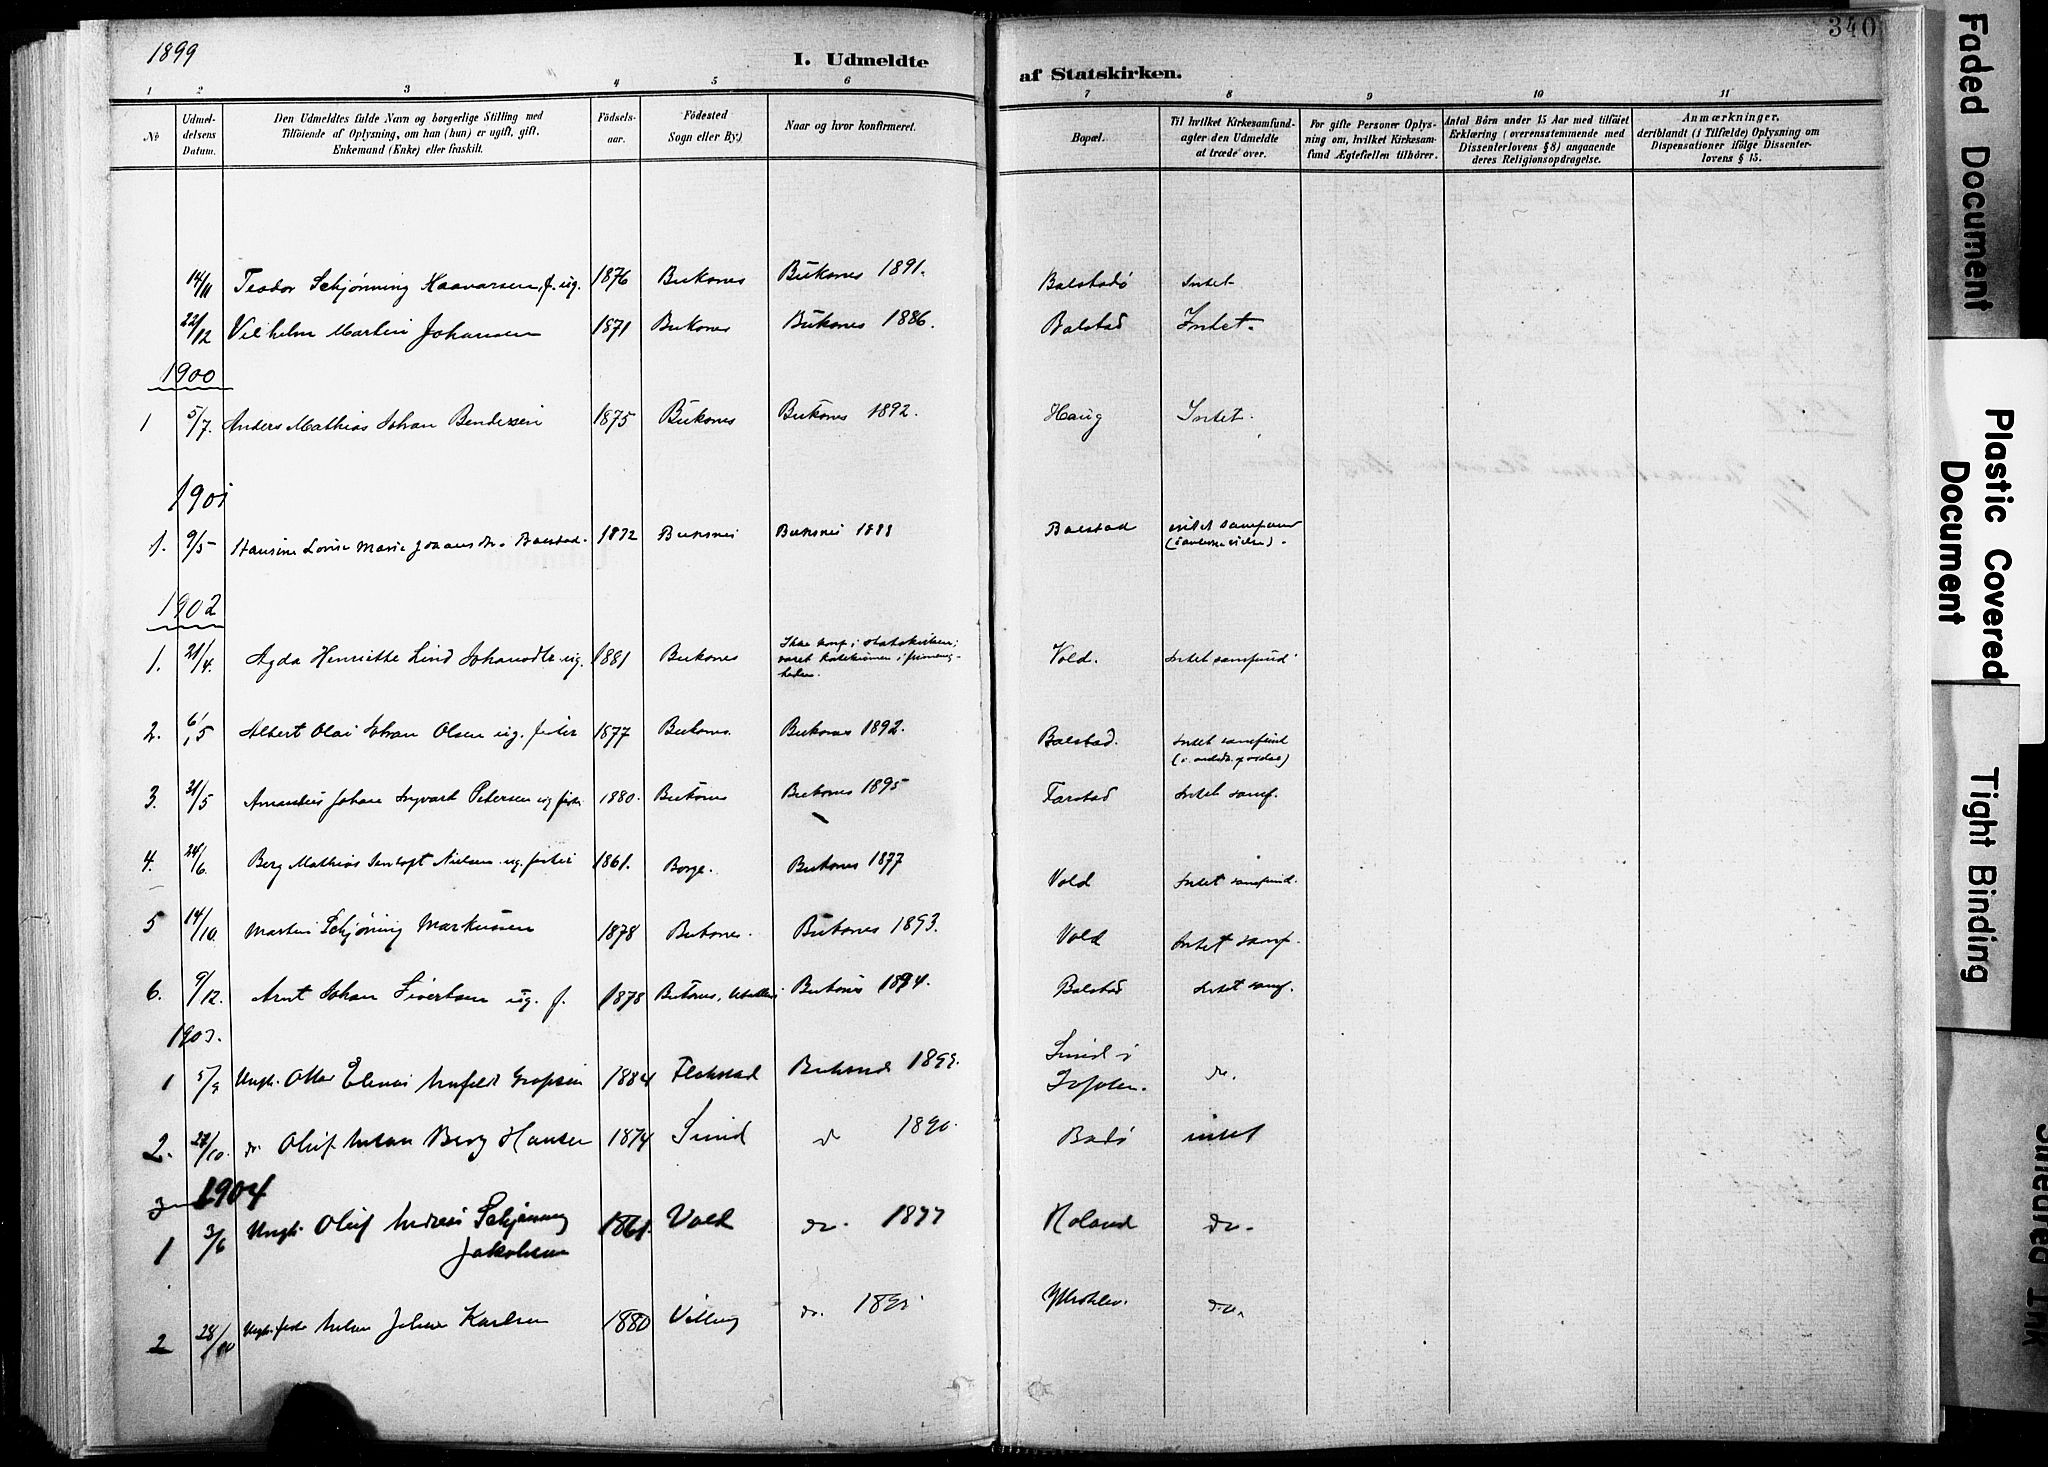 1899
I. Udmeldte
af Statskirken.
340
1 2 3 4 5 6 7 8 9 10 11
No
Udmel-
delsens
Datum.
Den Udmeldtes fulde Navn og borgerlige Stilling med
Tilföiende af Oplysning, om han (hun) er ugift, gift,
Enkemand (Enke) eller fraskilt.
Födsels-
aar.
Födested
Sogn eller By.)
Naar og hvor konfirmeret.
Bopæl.
Til hvilket Kirkesamfund
agter den Udmeldte
at træde over.
For gifte Personer Oplys-
ning om, hvilket Kirkesam-
fund Ægtefællen tilhörer.
Antal Börn under 15 Aar med tilföiet
Erklæring (overensstemmende med
Dissenterlovens § 8) angaaende
deres Religionsopdragelse.
Anmærkninger,
deriblandt (i Tilfælde) Oplysning om
Dispensationer ifölge Dissenter-
lovens § 15.
14/11 Teodor Schjønning Haavarsen, f. ug. 1876 Buksnes Buksnes 1891. Balstadø Intet
22/12 Vilhelm Martin Johansen 1871 Buksnes Buksnes 1886. Balstad Intet.
1900
1 5/7. Anders Mathias Johan Bendixen 1875 Buksnes Buksnes 1892. Haug Intet.
1901
1. 9/5 Hansine Lovise Marie Balstad. 1872 Buksnes Buksnes Balstad intet samfund
1902
1. 21/4. Agda Henriette Lind ug. 1881 Buksnes Ikke konf. i statskirken;
Vold. Intet samfund
2. 6/5 Albert Olai Johan Olsen ug. fisker 1877 Buksnes. Buksnes 1892. Balstad. Intet samfund
3. 31/5 Johan Ingvart Petersen ug. 1880. Buksnes Buksnes 1895 Farstad Intet samf.
4. 24/6. Berg Mathias Nielsen ug. fisker 1861. Borge. Buksnes 1877 Vold Intet samfund.
5 14/10. Martin Schjøning Markussen 1878 Buksnes. Buksnes 1893. Vold Intet samf.
6. 9/12. Arnt Johan Sivertsen ug. f. 1878 Buksnes, Buksnes 1894. Balstad Intet samf.
1903.
1 5/9 Ungk. 1884 Flakstad Buksnes Sund i
Lofoten. do.
2. 27/10. do Oluf Berg Hansen 1874 Sund do 1890. intet
3 1904
1 3/6 Ungk. Oluf Andreas Schjønning
Jakobsen 1861. Vold do. 1877 Holand do.
2 28/ Ungk. Johan Karlsen 1880 do. do.
Faded Document
Plastic Covered
Document
Tight Binding